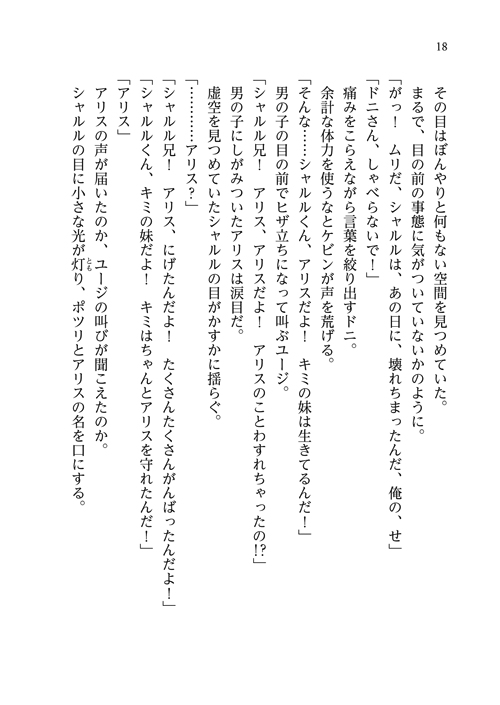 18
その目はぼんやりと何もない空間を見つめていた。
まるで、目の前の事態に気がついていないかのように。
「がっ！　ムリだ、シャルルは、あの日に、壊れちまったんだ、俺の、せ」
「ドニさん、しゃべらないで！」
痛みをこらえながら言葉を絞り出すドニ。
余計な体力を使うなとケビンが声を荒げる。
「そんな……シャルルくん、アリスだよ！　キミの妹は生きてるんだ！」
男の子の目の前でヒザ立ちになって叫ぶユージ。
「シャルル兄！　アリス、アリスだよ！　アリスのことわすれちゃったの!?」
男の子にしがみついたアリスは涙目だ。
虚空を見つめていたシャルルの目がかすかに揺らぐ。
「…………アリス？」
「シャルル兄！　アリス、にげたんだよ！　たくさんたくさんがんばったんだよ！」
「シャルルくん、キミの妹だよ！　キミはちゃんとアリスを守れたんだ！」
「アリス」
アリスの声が届いたのか、ユージの叫びが聞こえたのか。
シャルルの目に小さな光が灯り、ポツリとアリスの名を口にする。
とも